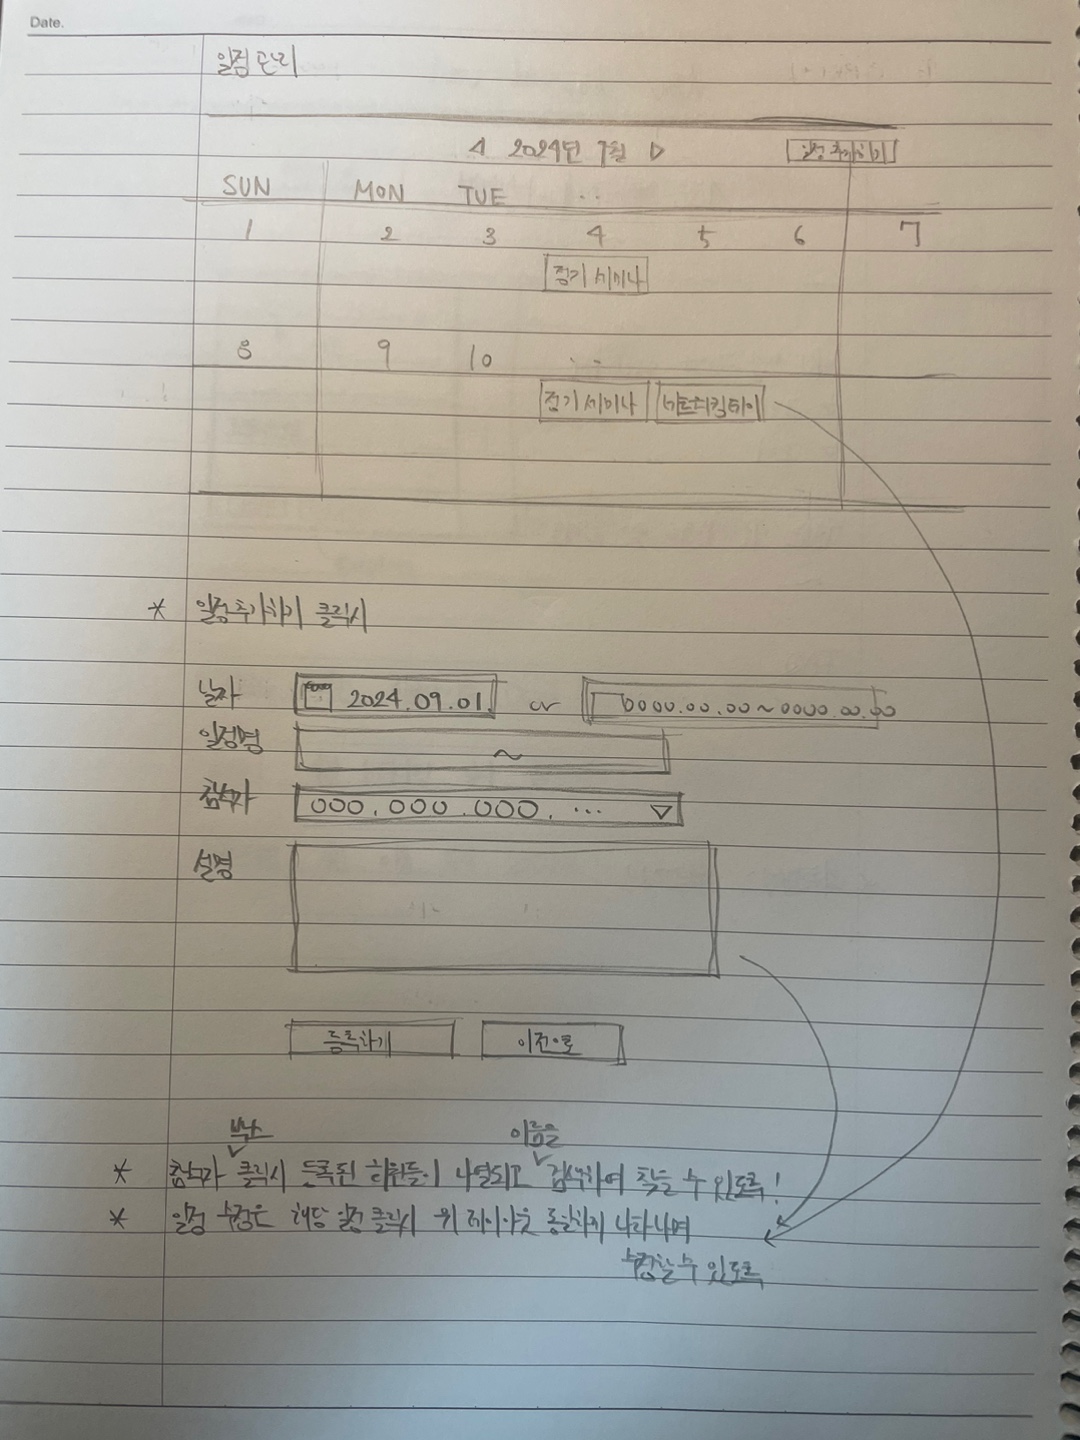 Date.
일정관리
◁ 2024년 9월 ▷ 일정추가하기
SUN MON TUE ..
1 2 3 4 5 6 7
정기세미나
8 9 10 ..
정기세미나
* 일정추가하기 클릭시
날자 2024.09.01. or 0000.00.00~0000.00.00
일정명 ~
참석자 000.000.000. ... ▽
설명
등록하기 이전으로
박스 이름을
* 참석자 클릭시 등록된 회원들이 나열되고 검색하여 찾을 수 있도록!
* 일정 수정은 해당 일정 클릭시 위 레이아웃 동일하게 나타나며
수정할 수 있도록